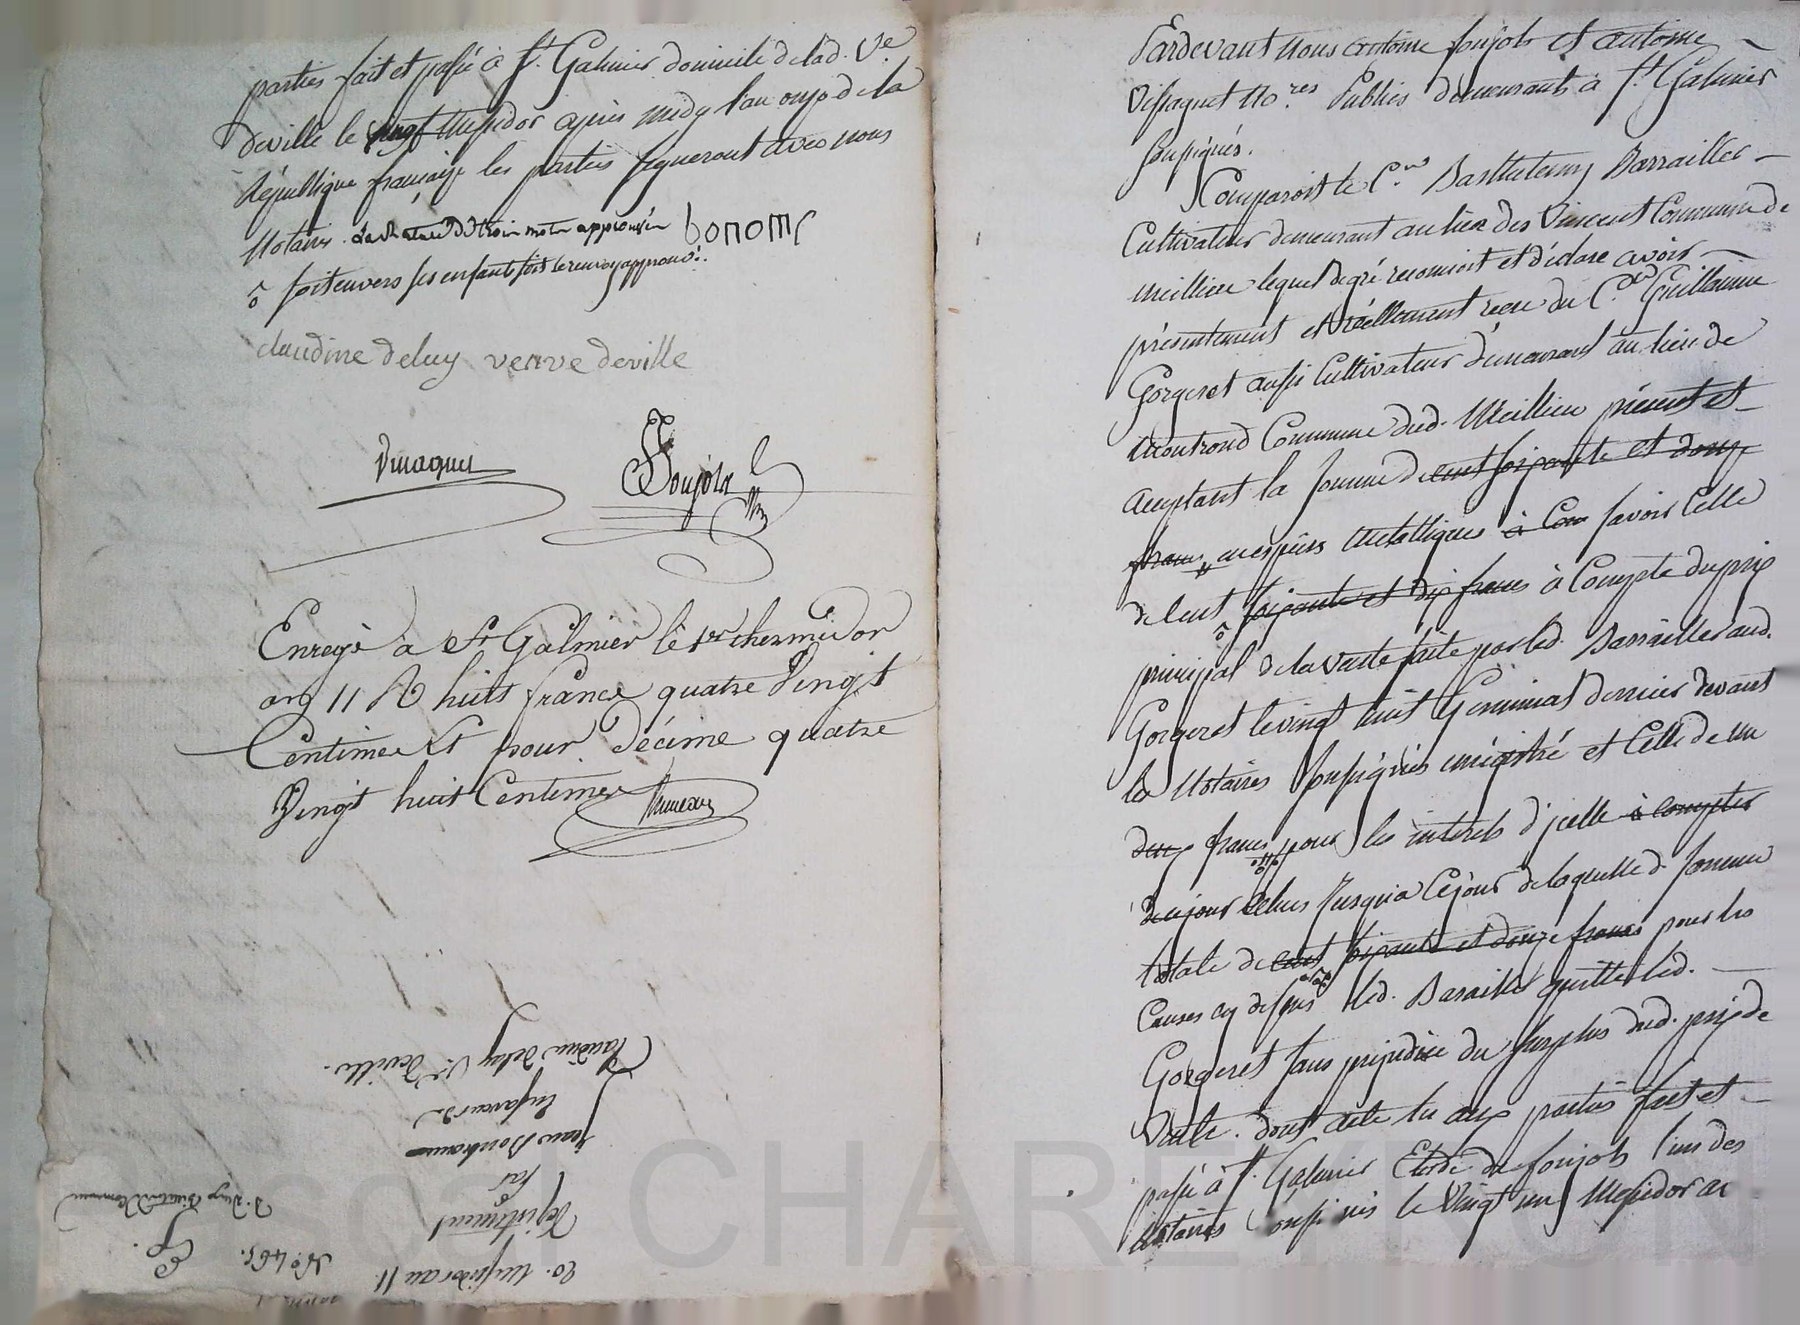 parties fait et passé à St. Galmier domicile de lad. Ve
deville le vingt Messidor après midy l'an onze de la
République française les parties signeront avec nous
Notaires. la rature de trois mots approuvée bonome
ô soit envers ses enfants soit le renvoy approuvé.
claudine deluy veuve deville
Vissaguet
Ponjols
Enregé à St Galmier le 1er thermidor
an 11 R huit francs quatre Vingt
Centimes et pour Décime quatre
Vingt huit Centimes
Claudine Deluy Ve Deville.
En faveur de
par
Désistement
20. Messidor an 11.
No. 465.
Pardevant nous antoine ponjols et antoine
Vissaguet No.res Publics demeurants à St. Galmier
soussignés.
Comparoit le C.en Barthelemy Barrailler
Cultivateur demeurant au lieu des Vincent Commune de
Meillieu lequel de gré reconnoit et déclare avoir
présentement et réellement reçu du C.en Guillaume
Gorgeret aussi Cultivateur demeurant au lieu de
Montrond Commune dud. Meillieu présent et
acceptant la somme de cent soixante et douze
francs en espèces Métalliques à Com savoir Celle
de Cent soixante et dix francs à Compte du prix
ô
principal de la Vente faite par led. Barrailler aud.
Gorgeret le vingt huit Germinal dernier devant
les Notaires soussignés enrégistré et Celle de
deux francs pour les interets d'icelle à compter
de ce jour Jusqu'à Ce jour de laquelle d. somme
totale de cent soixante et douze francs pour les
Causes cy dessus led. Barailler quitte led.
Gorgeret sans prejudice du surplus dud. prix de
Vente. dont acte lu aux parties fait et
passé à St. Galmier Etude de ponjols l'un des
Notaires soussignés le Vingt un Messidor an